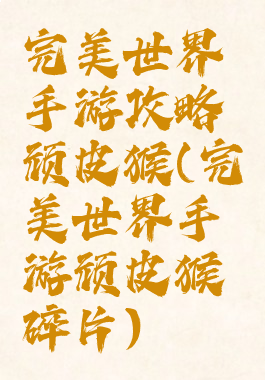 完美世界
手游攻略
顽皮猴(完
美世界手
游顽皮猴
碎片)